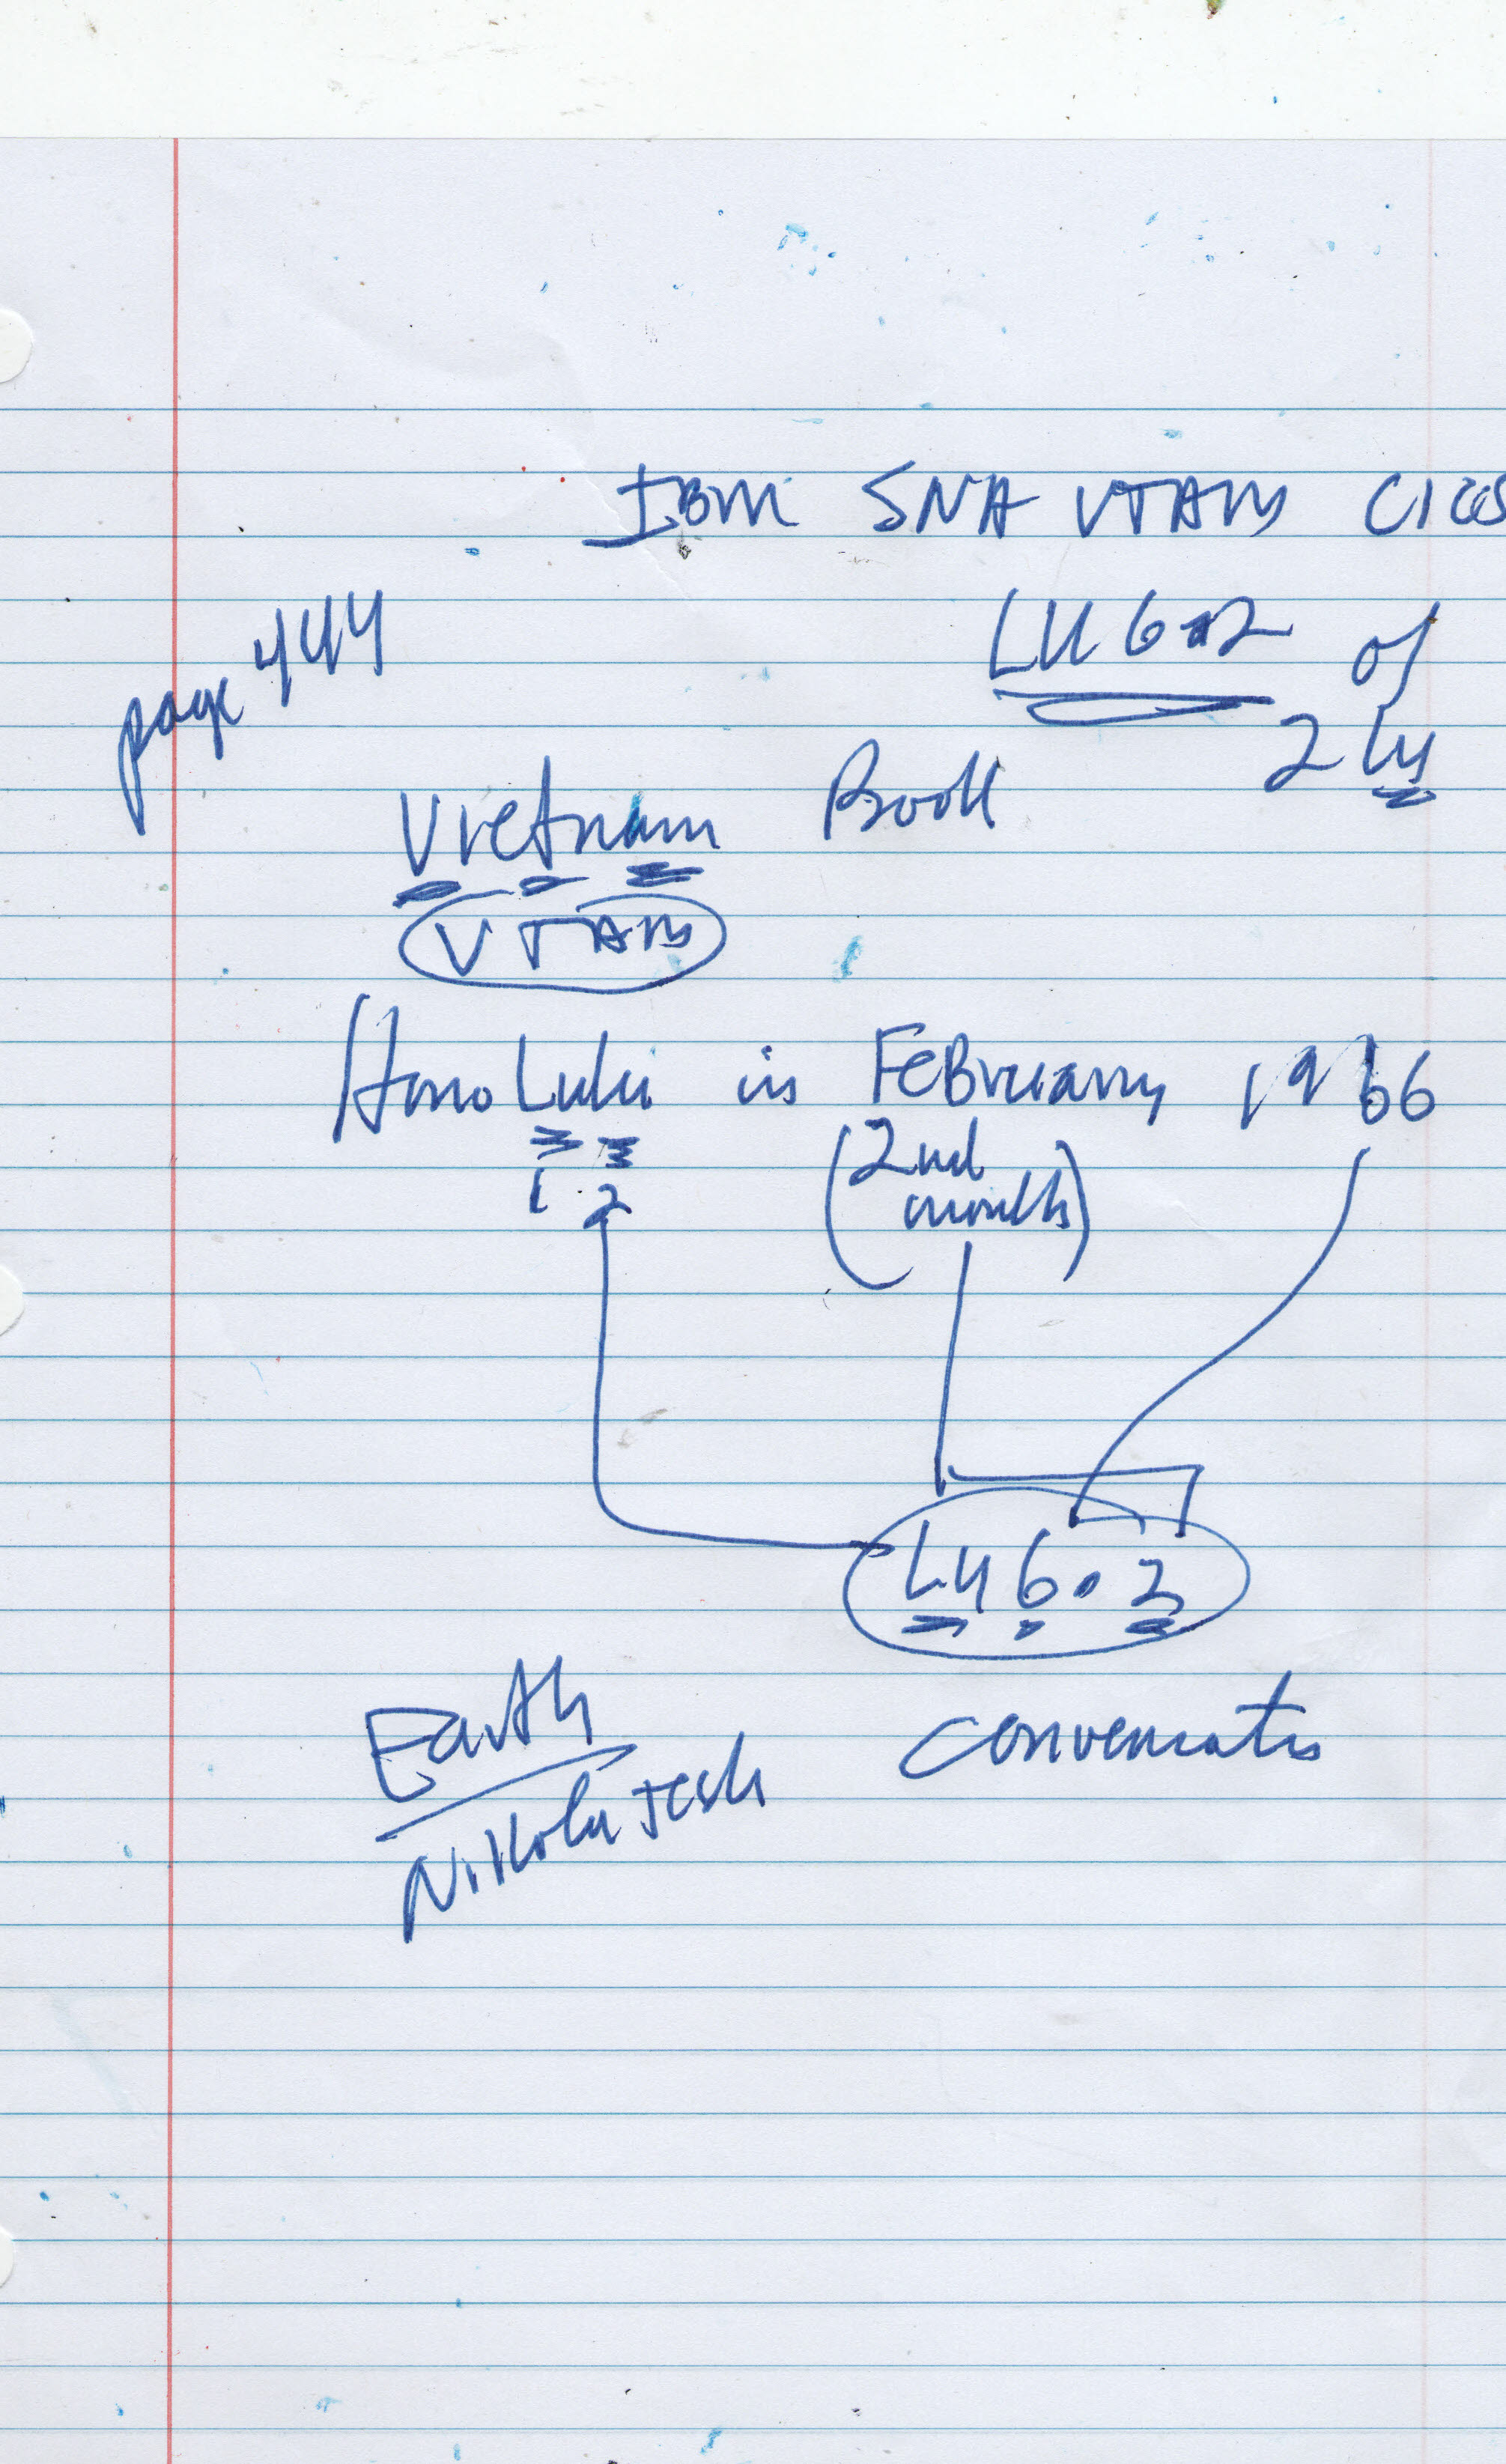 IBM SNA VTAM CICS
page 444
LU 6.2 of
2 LU
Vietnam Book
VTAM
HonoLulu in FeBruary 1966
1 2
(2nd
month)
LU 6.2
Earth
Nikola Tesla